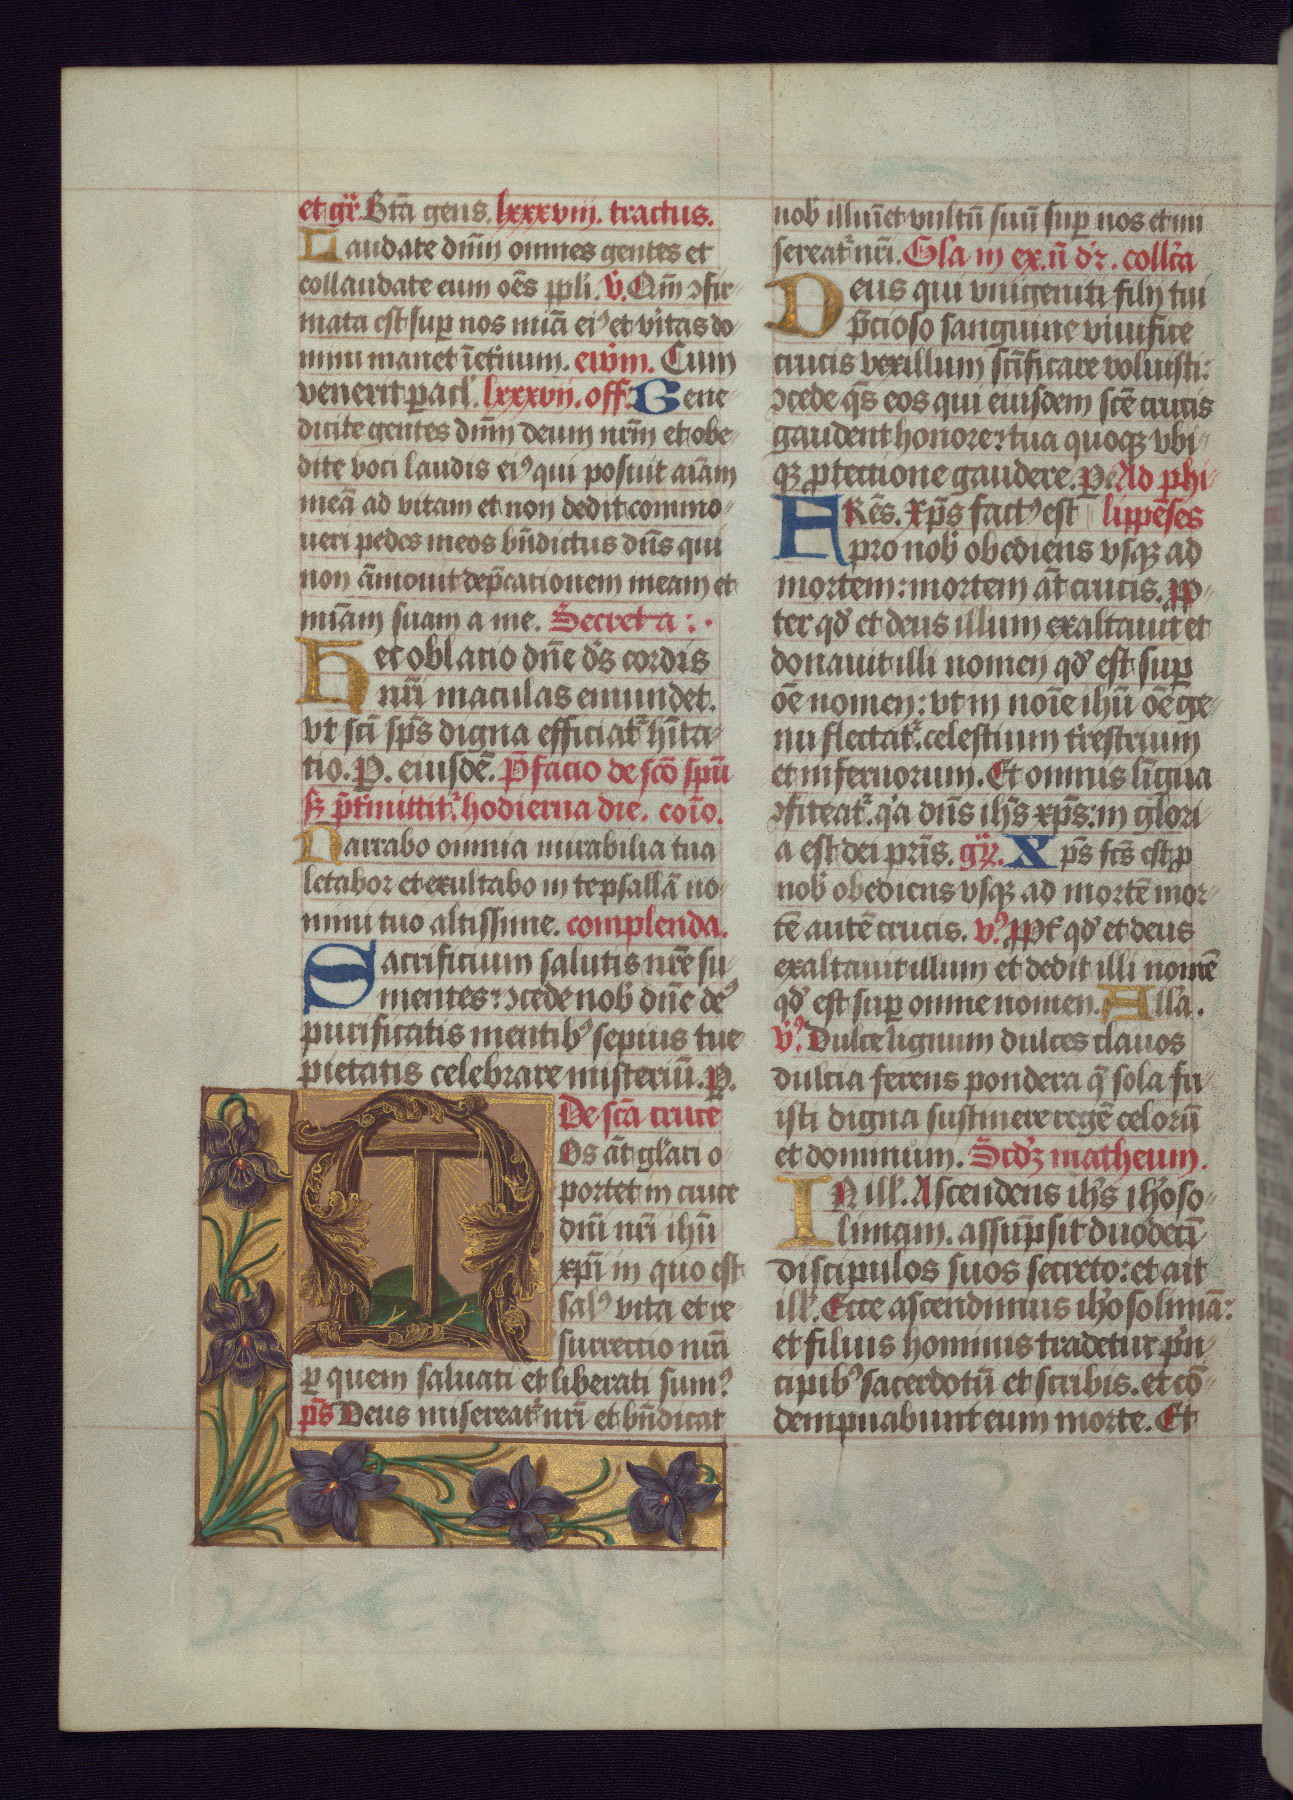 et gr̄. Bt̄a gens. lxxxviii. tractus.
Laudate dn̄m omnes gentes et
collaudate eum oēs ppl̄i. v̄. Qm̄ ꝯfir-
mata est sup nos mīa eiꝰ et v̄itas do-
mini manet īetnum. ew̄m. Cum
venerit pacl̄. lxxxvii. off. Bene-
dicite gentes dn̄m deum nr̄m et obe-
dite voci laudis eiꝰ qui posuit aīam
meā ad vitam et non dedit commo-
ueri pedes meos bn̄dictus dn̄s qui
non āmouit dep̄cationem meam et
mīam suam a me. Secreta :.
Hec oblatio dn̄e q̄s cordis
nr̄i maculas emundet.
vt sc̄i sp̄s digna efficiat᷑ hītā-
tio. P. eiusdē. P̄facio de sc̄o sp̄u
sꝫ p̄t̄mittit᷑ hodierna die. coīo.
Narrabo omnia mirabilia tua
letabor et exultabo in te psallā no-
mini tuo altissime. complenda.
Sacrificium salutis nr̄e su-
mentes: ꝯcede nob̄ dn̄e deꝰ
purificatis mentibꝰ sepius tue
pietatis celebrare misteriū. P.
De sc̄a cruce
Nos āt gl̄ari o-
portet in cruce
dn̄i nr̄i ihū
xp̄i in quo est
salꝰ vita et re-
surrectio nr̄a
ꝑ quem saluati et liberati sumꝰ
p̄s Deus misereat᷑ nr̄i et bn̄dicat
nob̄ illum̄et vultū suū sup nos et mi
sereat᷑ nr̄i. Gl̄a in ex. n̄ dr̄. coll̄ta
Deus qui vnigeniti filij tui
p̄cioso sanguine viuifice
crucis vexillum sc̄ificare voluisti:
ꝯcede q̄s eos qui eiusdem sc̄e crucis
gaudent honore: tua quoqꝫ vbi-
qꝫ ꝓtectione gaudere. P. Ad phi-
FRēs. Xp̄s factꝰ est lippēses
pro nob̄ obediens vsqꝫ ad
mortem: mortem āt crucis. ꝓp-
ter qd̄ et deus illum exaltauit et
donauit illi nomen qd̄ est sup
oē nomen: vt in noīe ihū oē ge-
nu flectat᷑. celestium t̄restrium
et infernorum. Et omnis lingua
ꝯfiteat᷑. q̄a dn̄s ihs̄ xp̄s: in glori-
a est dei pr̄is. gr̄. Xp̄s fcs̄ est ꝓ
nob̄ obediens vsqꝫ ad mortē mor-
tē autē crucis. vꝰ. Ꝓpt̄ qd̄ et deus
exaltauit illum et dedit illi nomē
qd̄ est sup omne nomen. All̄a.
vꝰ. Dulce lignum dulces clauos
dulcia ferens pondera q̄ sola fu-
isti digna sustinere regē celorū
et dominum. Scd̄ꝫ matheum.
IN ill̄. Ascendens ihs̄ ih̄oso-
limam. assūpsit duodecī
discipulos suos secreto: et ait
ill̄. Ecce ascendimus ih̄osolimā:
et filius hominis tradetur p̄n-
cipibꝰ sacerdotū et scribis. et cō-
dempnabunt eum morte. Et